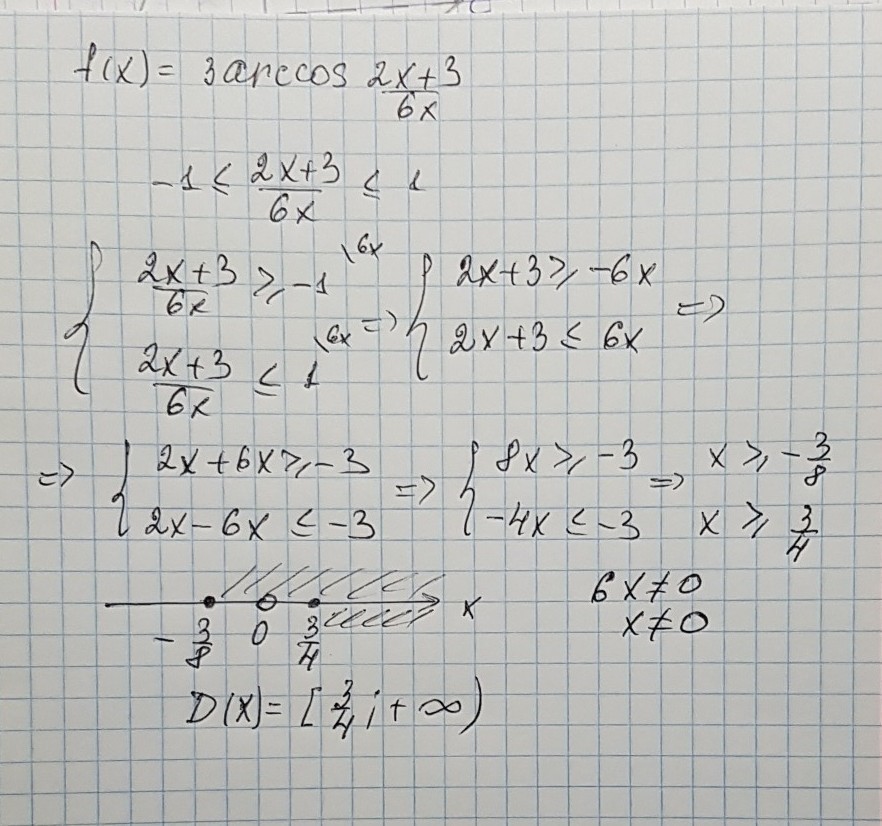 f(x) = 3 arccos (2x+3)/(6x)
-1 ≤ (2x+3)/(6x) ≤ 1
{ (2x+3)/(6x) ≥ -1 \6x ; (2x+3)/(6x) ≤ 1 \6x => { 2x+3 ≥ -6x ; 2x+3 ≤ 6x =>
=> { 2x+6x ≥ -3 ; 2x-6x ≤ -3 => { 8x ≥ -3 ; -4x ≤ -3 => x ≥ -3/8 ; x ≥ 3/4
-3/8 0 3/4 x
6x ≠ 0
x ≠ 0
D(x) = [3/4; +∞)